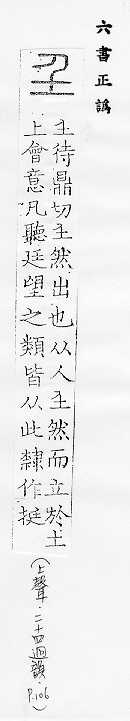 六書正譌
𡈼
𡈼待鼎切𡈼然出也从人𡈼然而立於土
上會意凡聽廷望之類皆从此隸作挺
(上聲.二十四迥韻.P.106)